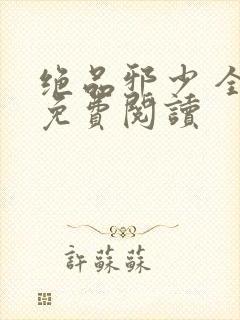 绝品邪少全
免費閱讀
許蘇蘇